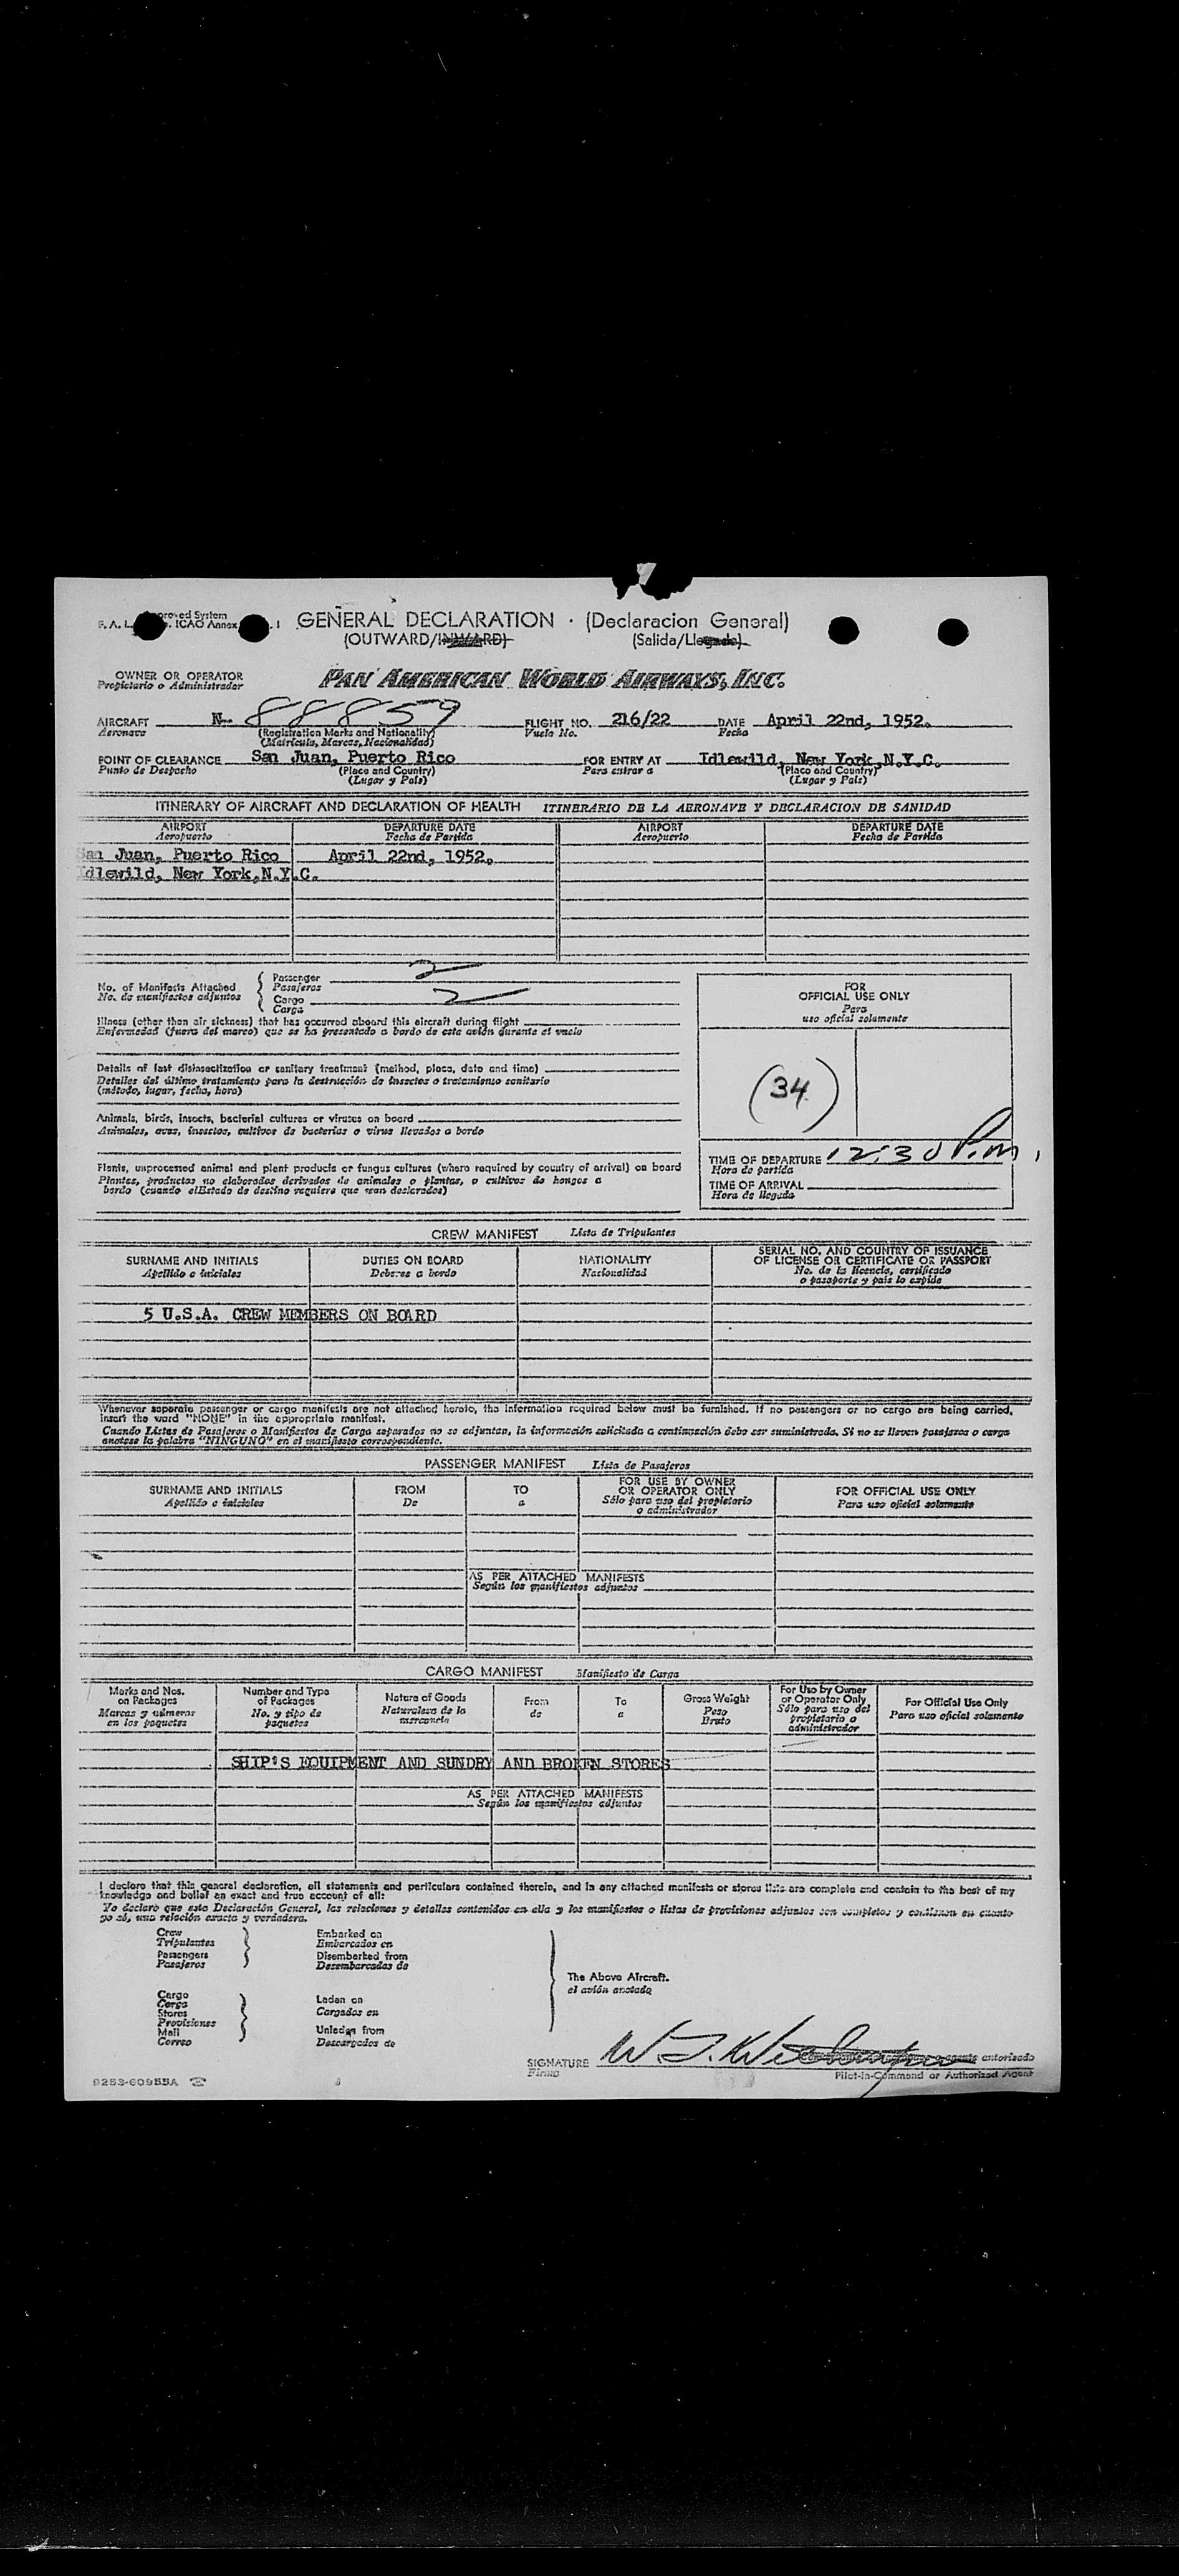 GENERAL DECLARATION · (Declaracion General)
(OUTWARD/INWARD) (Salida/Llegada)
OWNER OR OPERATOR PAN AMERICAN WORLD AIRWAYS, INC.
Propietario o Administrador
AIRCRAFT N- 88859 FLIGHT NO. 216/22 DATE April 22nd, 1952.
Aeronave (Registration Marks and Nationality) Vuelo No. Fecha
(Matricula, Marcas, Nacionalidad)
POINT OF CLEARANCE San Juan, Puerto Rico FOR ENTRY AT Idlewild, New York, N.Y.C.
Punto de Despacho (Place and Country) Para entrar a (Place and Country)
(Lugar y Pais) (Lugar y Pais)
ITINERARY OF AIRCRAFT AND DECLARATION OF HEALTH ITINERARIO DE LA AERONAVE Y DECLARACION DE SANIDAD
AIRPORT DEPARTURE DATE AIRPORT DEPARTURE DATE
Aeropuerto Fecha de Partida Aeropuerto Fecha de Partida
San Juan, Puerto Rico April 22nd, 1952.
Idlewild, New York,N.Y.C.
No. of Manifests Attached Passenger 2
No. de manifiestos adjuntos Pasajeros
Cargo 2
Carga
FOR
OFFICIAL USE ONLY
Para
uso oficial solamente
Illness (other than air sickness) that has occurred aboard this aircraft during flight
Enfermedad (fuera del mareo) que se ha presentado a bordo de este avión durante el vuelo
Details of last disinsectization or sanitary treatment (method, place, date and time)
Detalles del último tratamiento para la destrucción de insectos o tratamiento sanitario
(método, lugar, fecha, hora)
(34)
Animals, birds, insects, bacterial cultures or viruses on board
Animales, aves, insectos, cultivos de bacterias o virus llevados a bordo
Plants, unprocessed animal and plant products or fungus cultures (where required by country of arrival) on board
Plantas, productos no elaborados derivados de animales o plantas, o cultivos de hongos a
bordo (cuando elEstado de destino requiere que sean declarados)
TIME OF DEPARTURE 12:30 P.m.
Hora de partida
TIME OF ARRIVAL
Hora de llegada
CREW MANIFEST Lista de Tripulantes
SURNAME AND INITIALS DUTIES ON BOARD NATIONALITY SERIAL NO. AND COUNTRY OF ISSUANCE
OF LICENSE OR CERTIFICATE OR PASSPORT
Apellido e iniciales Deberes a bordo Nacionalidad No. de la licencia, certificado
o pasaporte y pais lo expide
5 U.S.A. CREW MEMBERS ON BOARD
Whenever separate passenger or cargo manifests are not attached hereto, the information required below must be furnished. If no passengers or no cargo are being carried,
insert the word "NONE" in the appropriate manifest.
Cuando Listas de Pasajeros o Manifiestos de Carga separados no se adjuntan, la información solicitada a continuación debe ser suministrada. Si no se lleven pasajeros o carga
anotese la palabra "NINGUNO" en el manifiesto correspondiente.
PASSENGER MANIFEST Lista de Pasajeros
SURNAME AND INITIALS FROM TO FOR USE BY OWNER
OR OPERATOR ONLY FOR OFFICIAL USE ONLY
Apellido e iniciales De a Sólo para uso del propietario
o administrador Para uso oficial solamente
AS PER ATTACHED MANIFESTS
Según los manifiestos adjuntos
CARGO MANIFEST Manifiesto de Carga
Marks and Nos.
on Packages
Marcas y números
en los paquetes
Number and Type
of Packages
No. y tipo de
paquetes
Nature of Goods
Naturaleza de la
mercancia
From
de
To
a
Gross Weight
Peso
Bruto
For Use by Owner
or Operator Only
Sólo para uso del
propietario o
administrador
For Official Use Only
Para uso oficial solamente
SHIP'S EQUIPMENT AND SUNDRY AND BROKEN STORES
AS PER ATTACHED MANIFESTS
Según los manifiestos adjuntos
I declare that this general declaration, all statements and particulars contained therein, and in any attached manifests or stores lists are complete and contain to the best of my
knowledge and belief an exact and true account of all:
Yo declaro que esta Declaración General, las relaciones y detalles contenidos en ella y los manifiestos o listas de provisiones adjuntos son completos y contienen en cuanto
yo sé, una relación exacta y verdadera.
Crew Embarked on
Tripulantes Embarcados en
Passengers Disembarked from
Pasajeros Desembarcados de
The Above Aircraft.
el avión anotado
Cargo Laden on
Carga Cargados en
Stores
Provisiones
Mail Unladen from
Correo Descargados de
SIGNATURE
Firma autorizado
Pilot-in-Command or Authorized Agent
9253-60955A